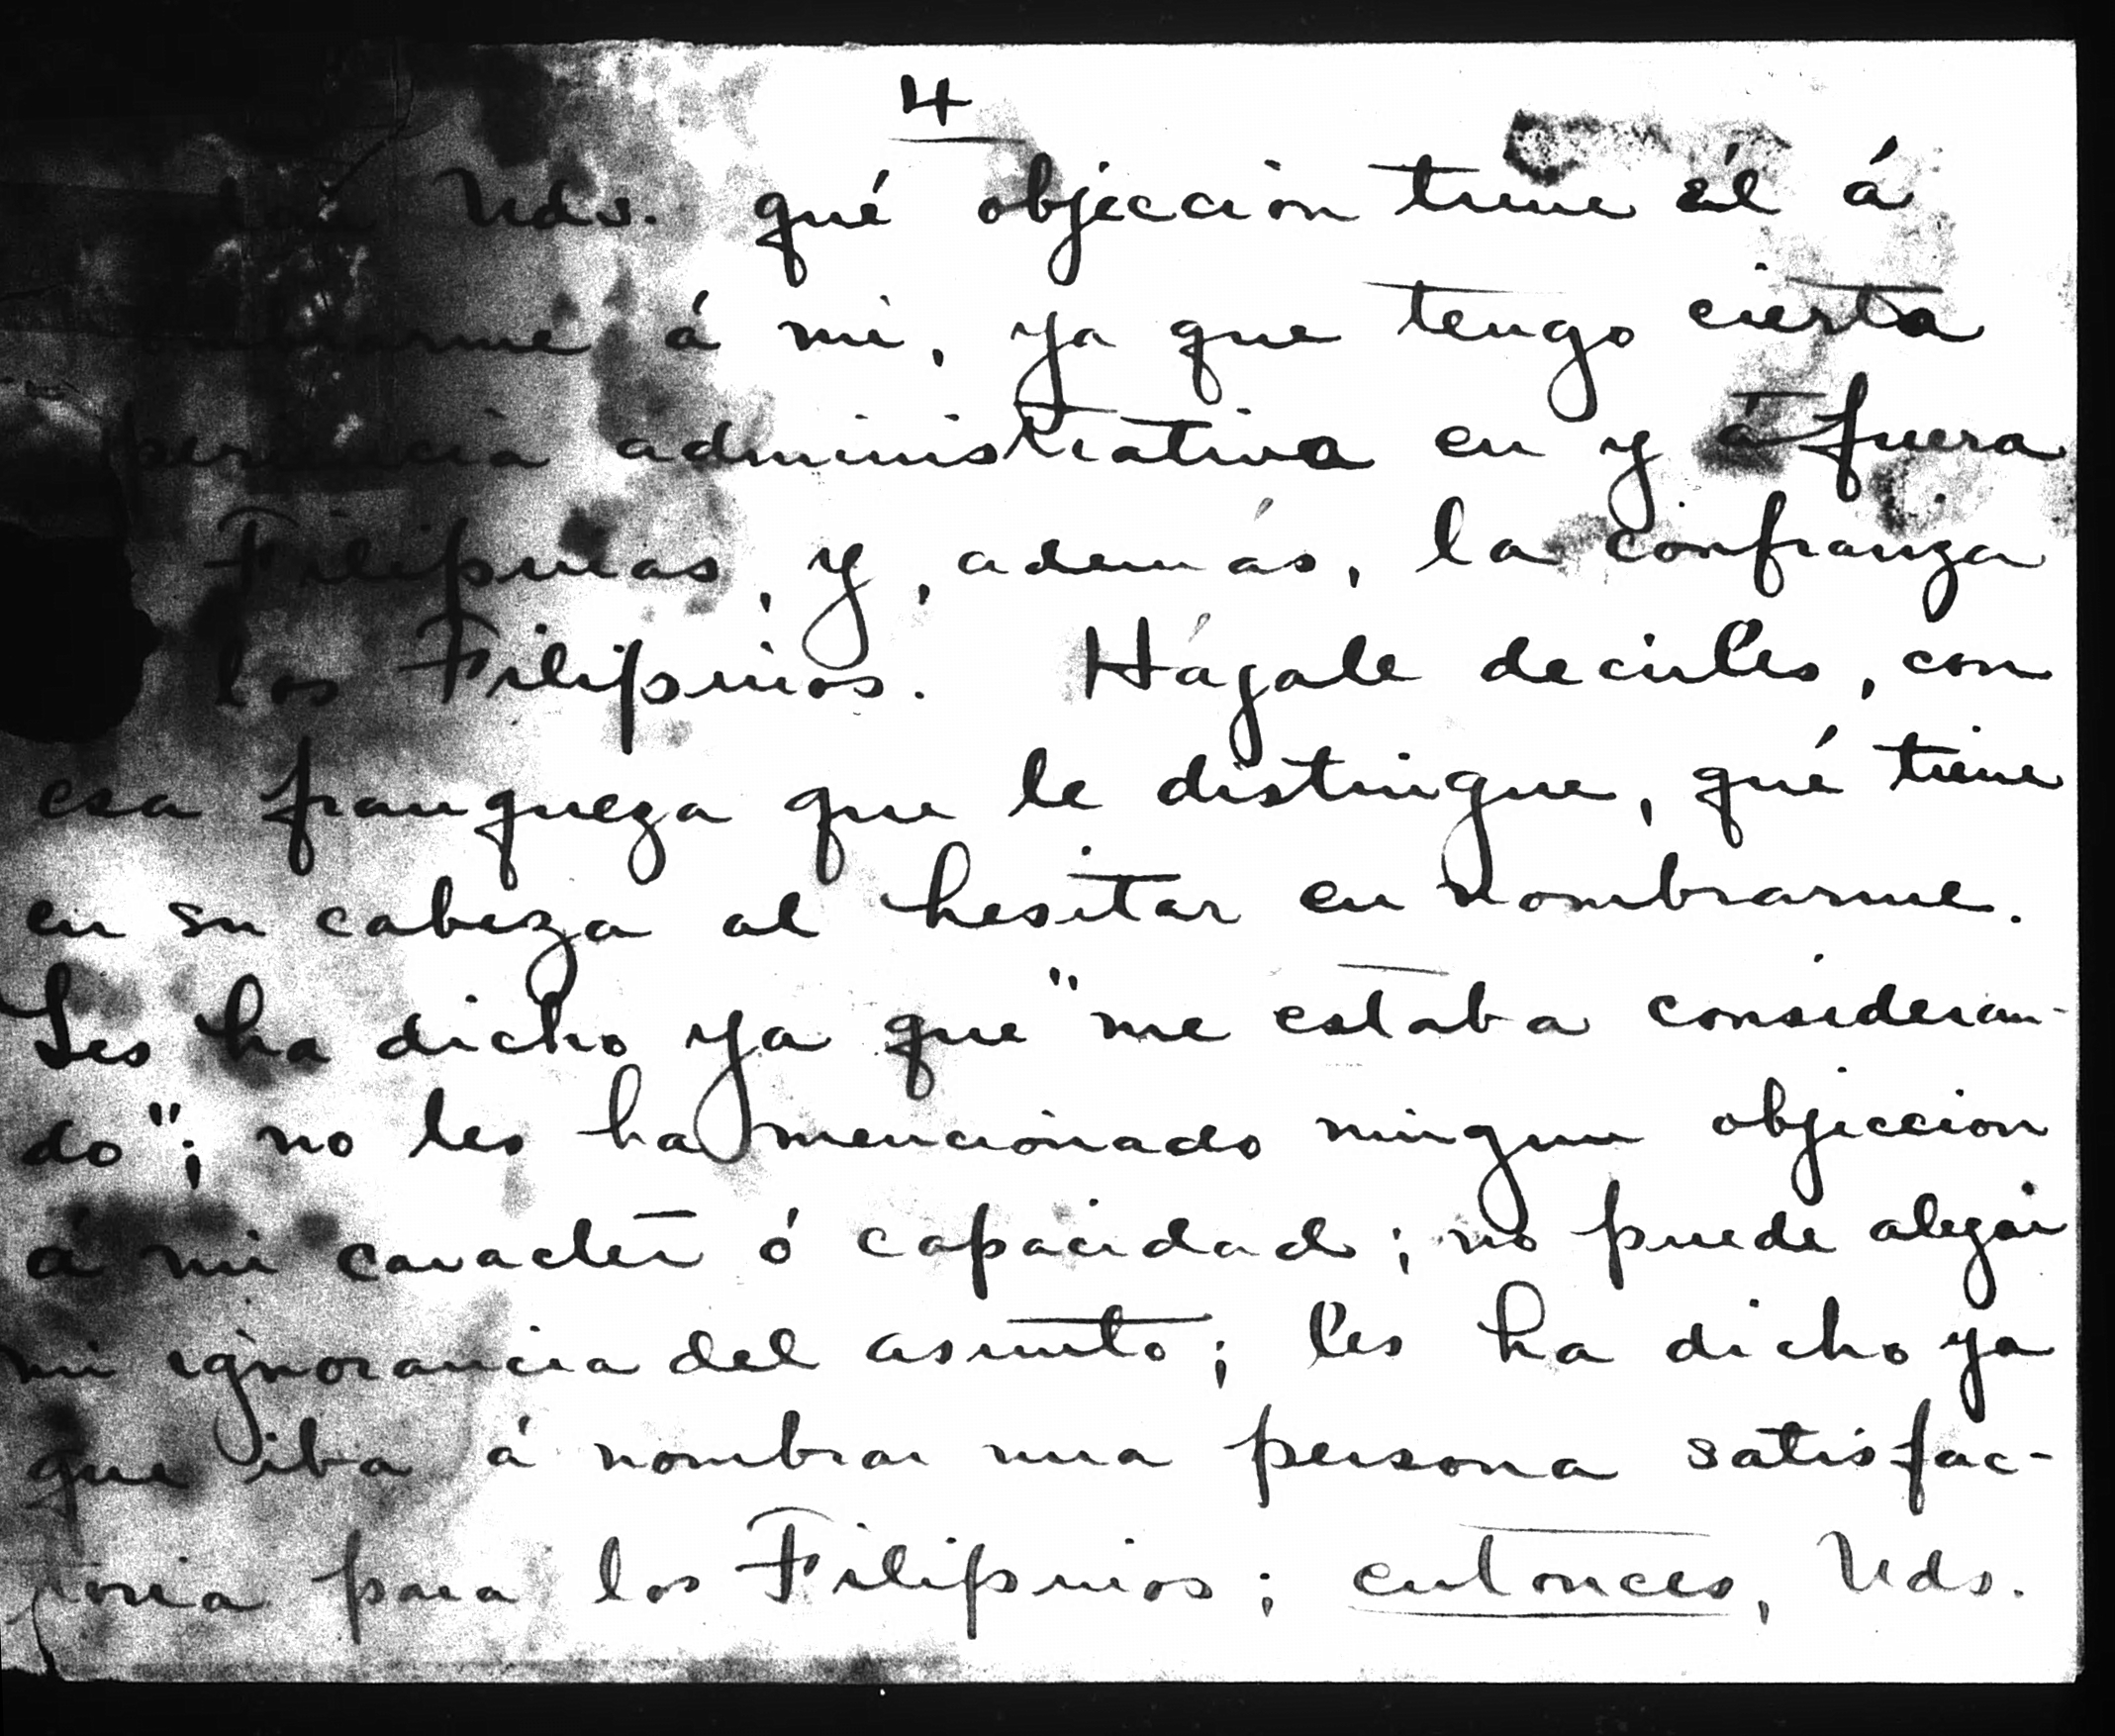 4
Uds. qué objeccion tiene él á
nombrarme á mi, ya que tengo cierta
periencia administrativa en y á fuera
Filipinas, y, además, la confianza
los Filipinos. Hágale decirles, con
esa franqueza que le distingue, qué tiene
en su cabeza al hesitar en nombrarme.
Les ha dicho ya que "me estaba consideran-
do"; no les ha mencionado ningun objeccion
á mi caracter ó capacidad; no puede alegar
mi ignorancia del asunto; les ha dicho ya
que iba á nombrar una persona satisfac-
toria para los Filipinos; entonces, Uds.